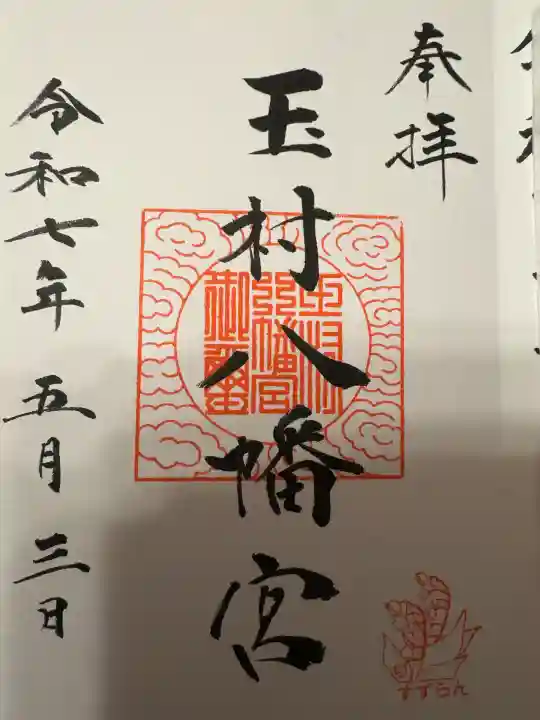 奉拝
玉村八幡宮
玉村
八幡宮
御璽
令和七年五月三日
すずらん